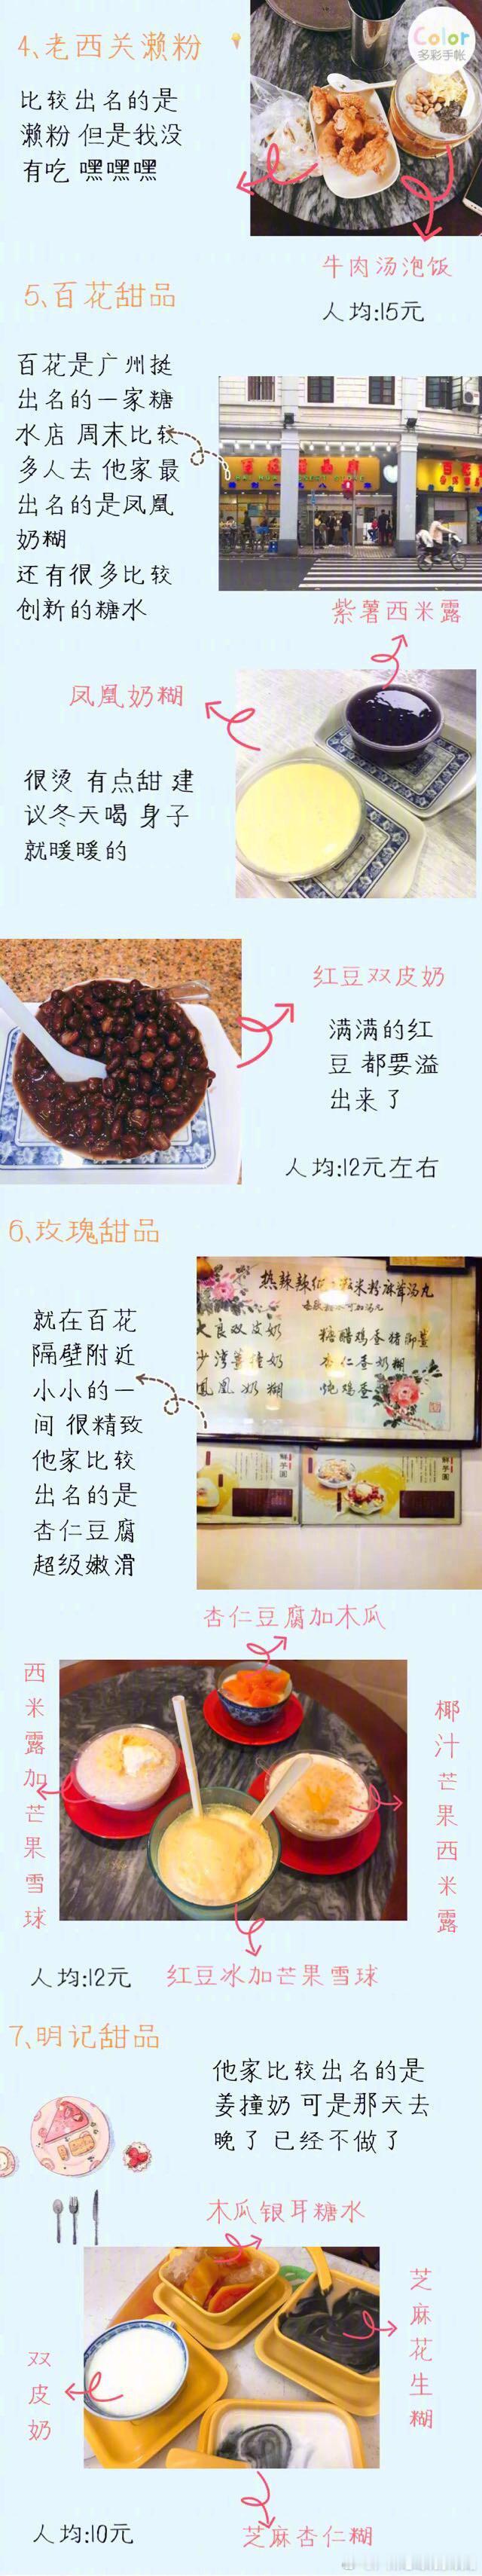 4、老西关濑粉
Color
多彩手帐
比较出名的是
濑粉 但是我没
有吃 嘿嘿嘿
牛肉汤泡饭
人均:15元
5、百花甜品
百花是广州挺
出名的一家糖
水店 周末比较
多人去 他家最
出名的是凤凰
奶糊
还有很多比较
创新的糖水
紫薯西米露
凤凰奶糊
很烫 有点甜 建
议冬天喝 身子
就暖暖的
红豆双皮奶
满满的红
豆 都要溢
出来了
人均:12元左右
6、玫瑰甜品
就在百花
隔壁附近
小小的一
间 很精致
他家比较
出名的是
杏仁豆腐
超级嫩滑
大良双皮奶
凤凰奶糊
杏仁香奶糊
杏仁豆腐加木瓜
西米露加芒果雪球
椰汁芒果西米露
人均:12元
红豆冰加芒果雪球
7、明记甜品
他家比较出名的是
姜撞奶 可是那天去
晚了 已经不做了
木瓜银耳糖水
芝麻花生糊
双皮奶
人均:10元
芝麻杏仁糊